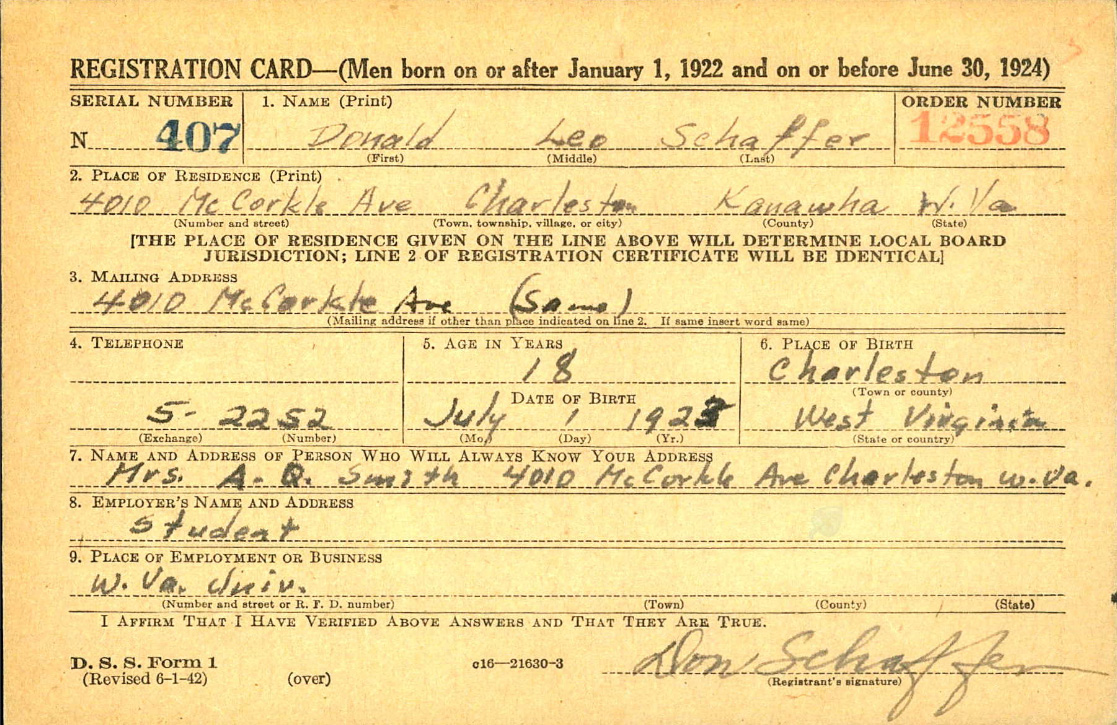 REGISTRATION CARD—(Men born on or after January 1, 1922 and on or before June 30, 1924)
SERIAL NUMBER 1. NAME (Print) ORDER NUMBER
N 407 Donald Leo Schaffer 12558
(First) (Middle) (Last)
2. PLACE OF RESIDENCE (Print)
4010 McCorkle Ave Charleston Kanawha W. Va
(Number and street) (Town, township, village, or city) (County) (State)
[THE PLACE OF RESIDENCE GIVEN ON THE LINE ABOVE WILL DETERMINE LOCAL BOARD
JURISDICTION; LINE 2 OF REGISTRATION CERTIFICATE WILL BE IDENTICAL]
3. MAILING ADDRESS
4010 McCorkle Ave (Same)
(Mailing address if other than place indicated on line 2. If same insert word same)
4. TELEPHONE 5. AGE IN YEARS 6. PLACE OF BIRTH
18 Charleston
DATE OF BIRTH (Town or county)
5- 2252 July 1 1923 West Virginia
(Exchange) (Number) (Mo.) (Day) (Yr.) (State or country)
7. NAME AND ADDRESS OF PERSON WHO WILL ALWAYS KNOW YOUR ADDRESS
Mrs. A. Q. Smith 4010 McCorkle Ave Charleston W. Va.
8. EMPLOYER'S NAME AND ADDRESS
Student
9. PLACE OF EMPLOYMENT OR BUSINESS
W. Va. Univ.
(Number and street or R. F. D. number) (Town) (County) (State)
I AFFIRM THAT I HAVE VERIFIED ABOVE ANSWERS AND THAT THEY ARE TRUE.
D. S. S. Form 1 c16—21630-3 Don Schaffer
(Revised 6-1-42) (over) (Registrant's signature)